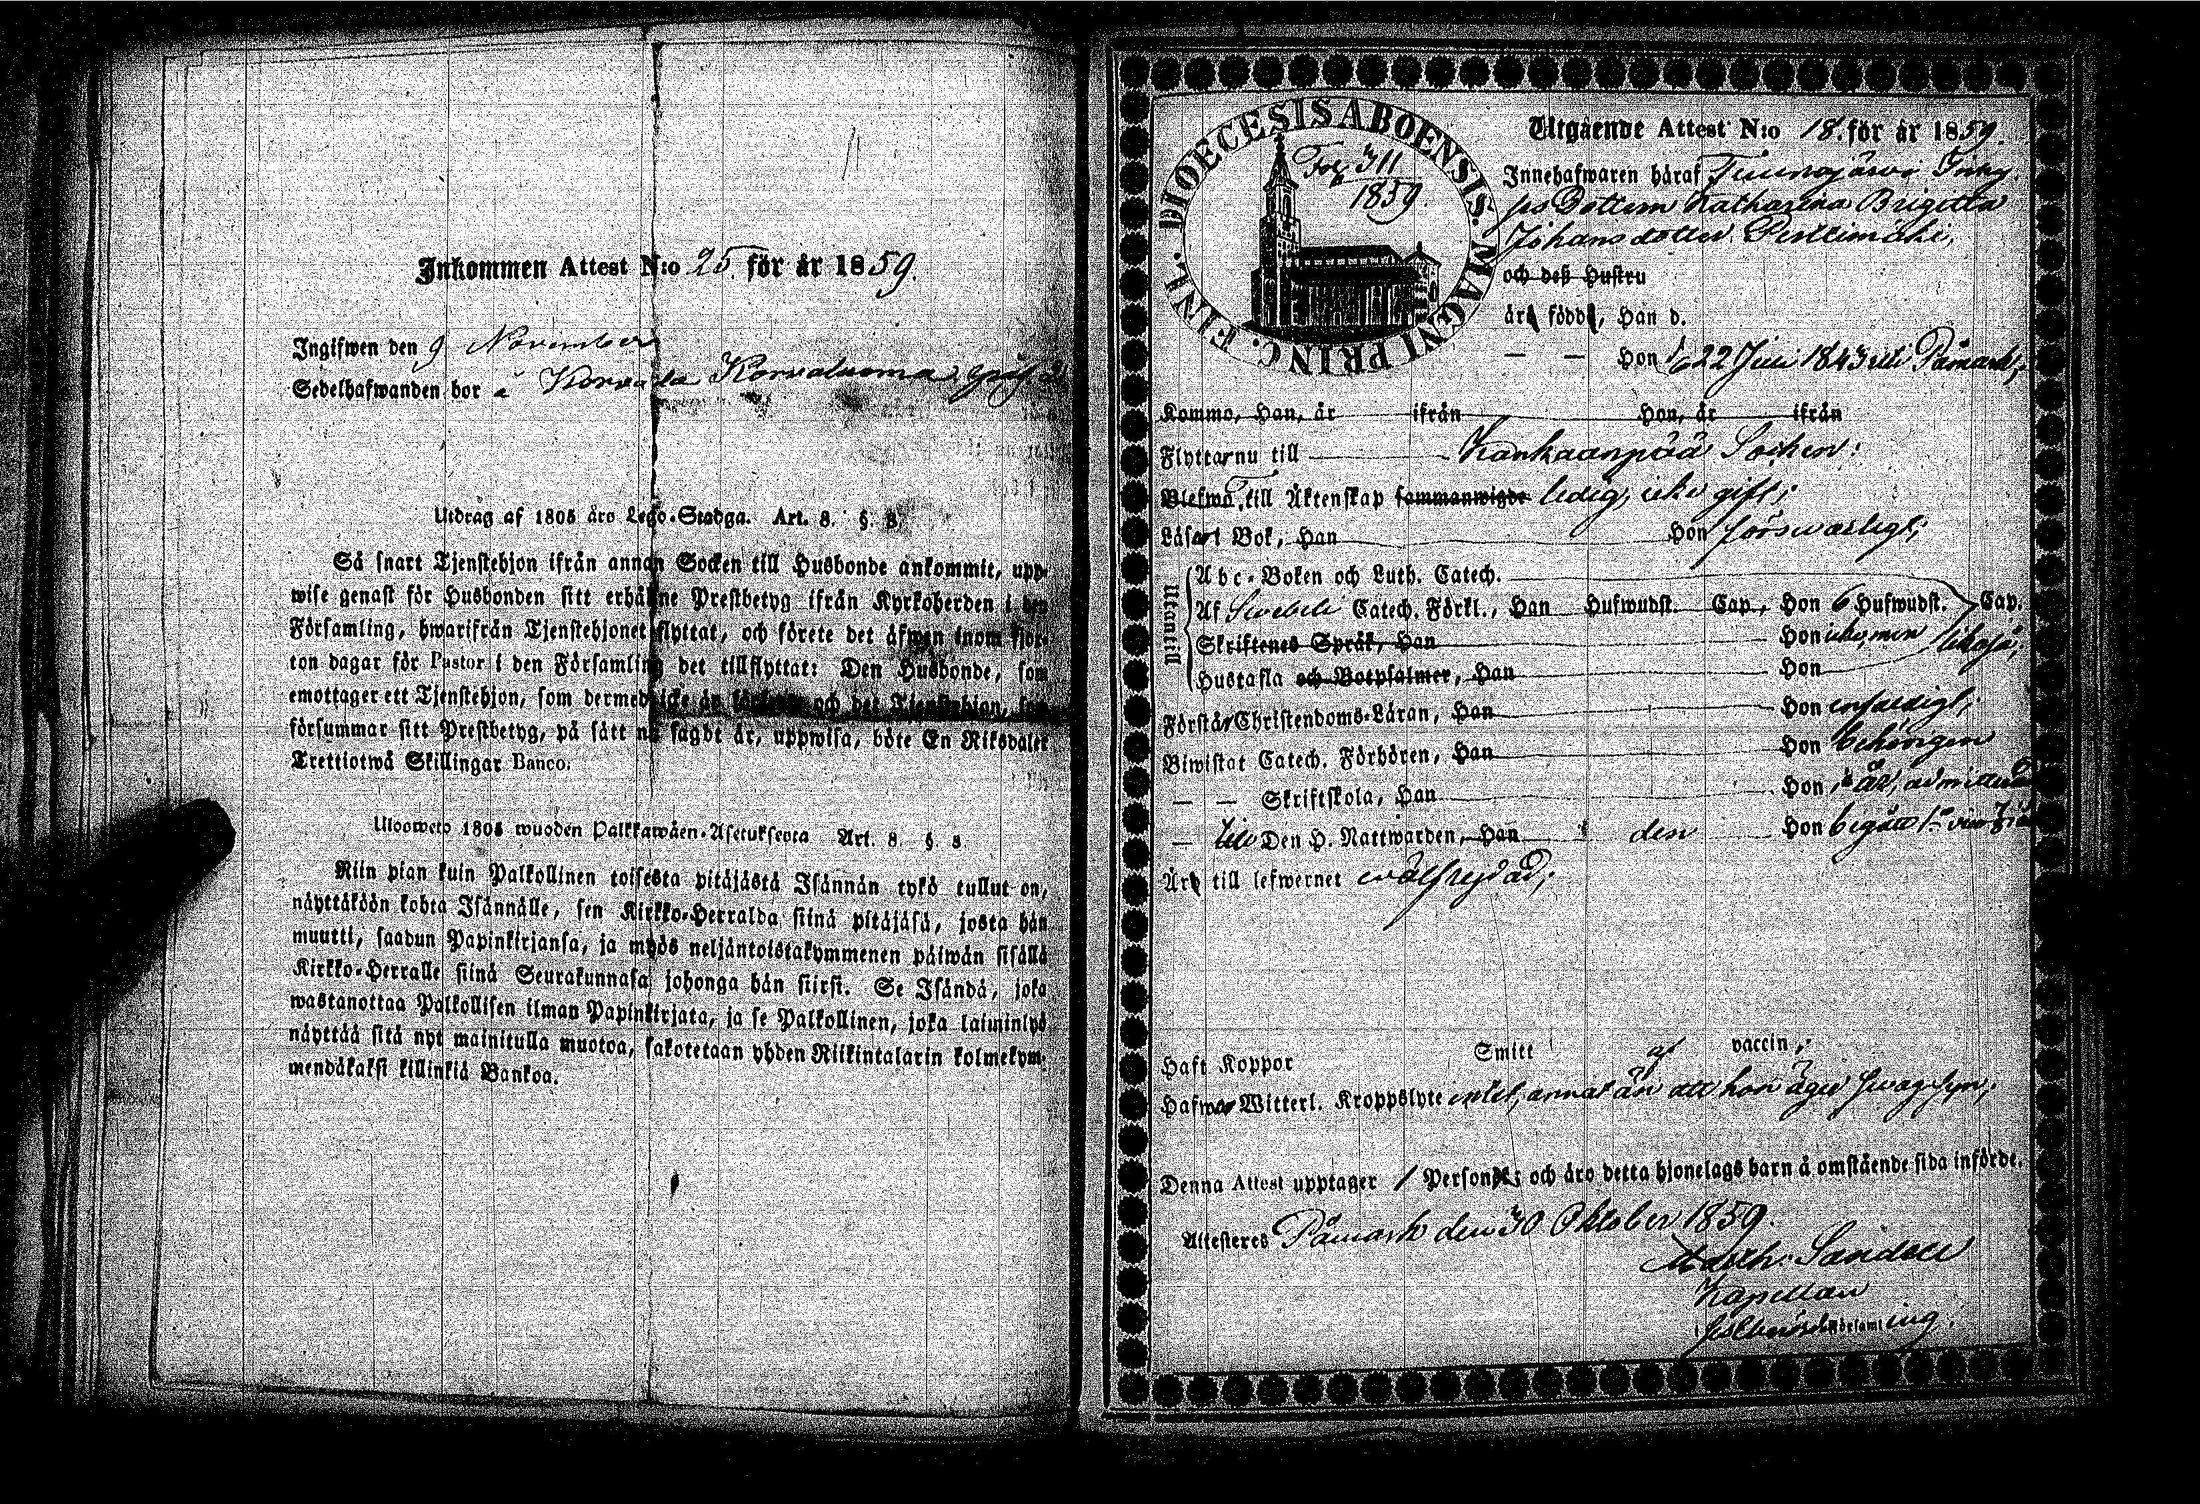 Inkommen Attest N:o 25 för år 1859.
Ingifwen den 9 November
Sedelhafwanden bor å Korvala Korvaluoma
Utdrag af 1805 års Lego-Stadga. Art. 8. §. 8.
Så snart Tjenstehjon ifrån annan Socken till Husbonde ankommit, upp-
wise genast för Husbonden sitt erhållne Prestbetyg ifrån Kyrkoherden i den
Församling, hwarifrån Tjenstehjonet flyttat, och förete det äfwen inom fjor-
ton dagar för Pastor i den Församling det tillflyttat: Den Husbonde, som
emottager ett Tjenstehjon, som dermed icke är och det Tjenstehjon, som
försummar sitt Prestbetyg, på sätt nu sagdt är, uppwisa, böte En Riksdaler
Trettiotwå Skillingar Banco.
Uloosweto 1805 wuoden Palkkawäen-Asetuksesta Art. 8. § 8
Niin pian kuin Palkollinen toisesta pitäjästä Isännän tykö tullut on,
näyttäköön kohta Isännälle, sen Kirkko-Herralda siinä pitäjäsä, josta hän
muutti, saadun Papinkirjansa, ja myös neljäntoistakymmenen päiwän sisällä
Kirkko-Herralle siinä Seurakunnasa johonga hän siirst. Se Isändä, joka
wastanottaa Palkollisen ilman Papinkirjata, ja se Palkollinen, joka laiminlyö
näyttää sitä nyt mainitulla muotoa, sakotetaan yhden Riikintalarin kolmekym-
mendäkaksi killinkiä Bankoa.
DIOECESIS ABOENSIS. MAGNI PRINC. FINL.
Fol. 311
1859
Utgående Attest N:o 18. för år 1859.
Innehafwaren häraf
Dottern Katharina Brigitta
Johansdotter Perttimäki,
och deß Hustru
äro födde, Han d.
— — Hon d. 22 Juli 1843 uti Påmark;
Komne, Han, år ifrån Hon, år ifrån
Flyttar nu till Kankaanpää Socken:
Blefwo till Äktenskap sammanwigde ledig, icke gift;
Läsart Bok, Han Hon förswarligt;
Utantill
Abc-Boken och Luth. Catech.
Af Swebeli Catech. Förkl., Han Hufwudst. Cap., Hon 6 Hufwudst. Cap.
Skriftenes Språk, Han Hon
Hustafla och Botpsalmer, Han Hon
Förstår Christendoms-Läran, Han Hon enfaldigt;
Biwistat Catech. Förhören, Han Hon behörigen
— — Skriftskola, Han Hon
— till Den H. Nattwarden, Han den Hon begått
Äro till lefwernet wälfrejdad;
Haft Koppor Smitt af vaccin;
Hafwer Witterl. Kroppslyte intet, annat än att hon äger swag syn;
Denna Attest upptager 1 Person; och äro detta hjonelags barn å omstående sida införde.
Attesteres Påmark den 30 Oktober 1859.
Matth. Sandell
Kapellan